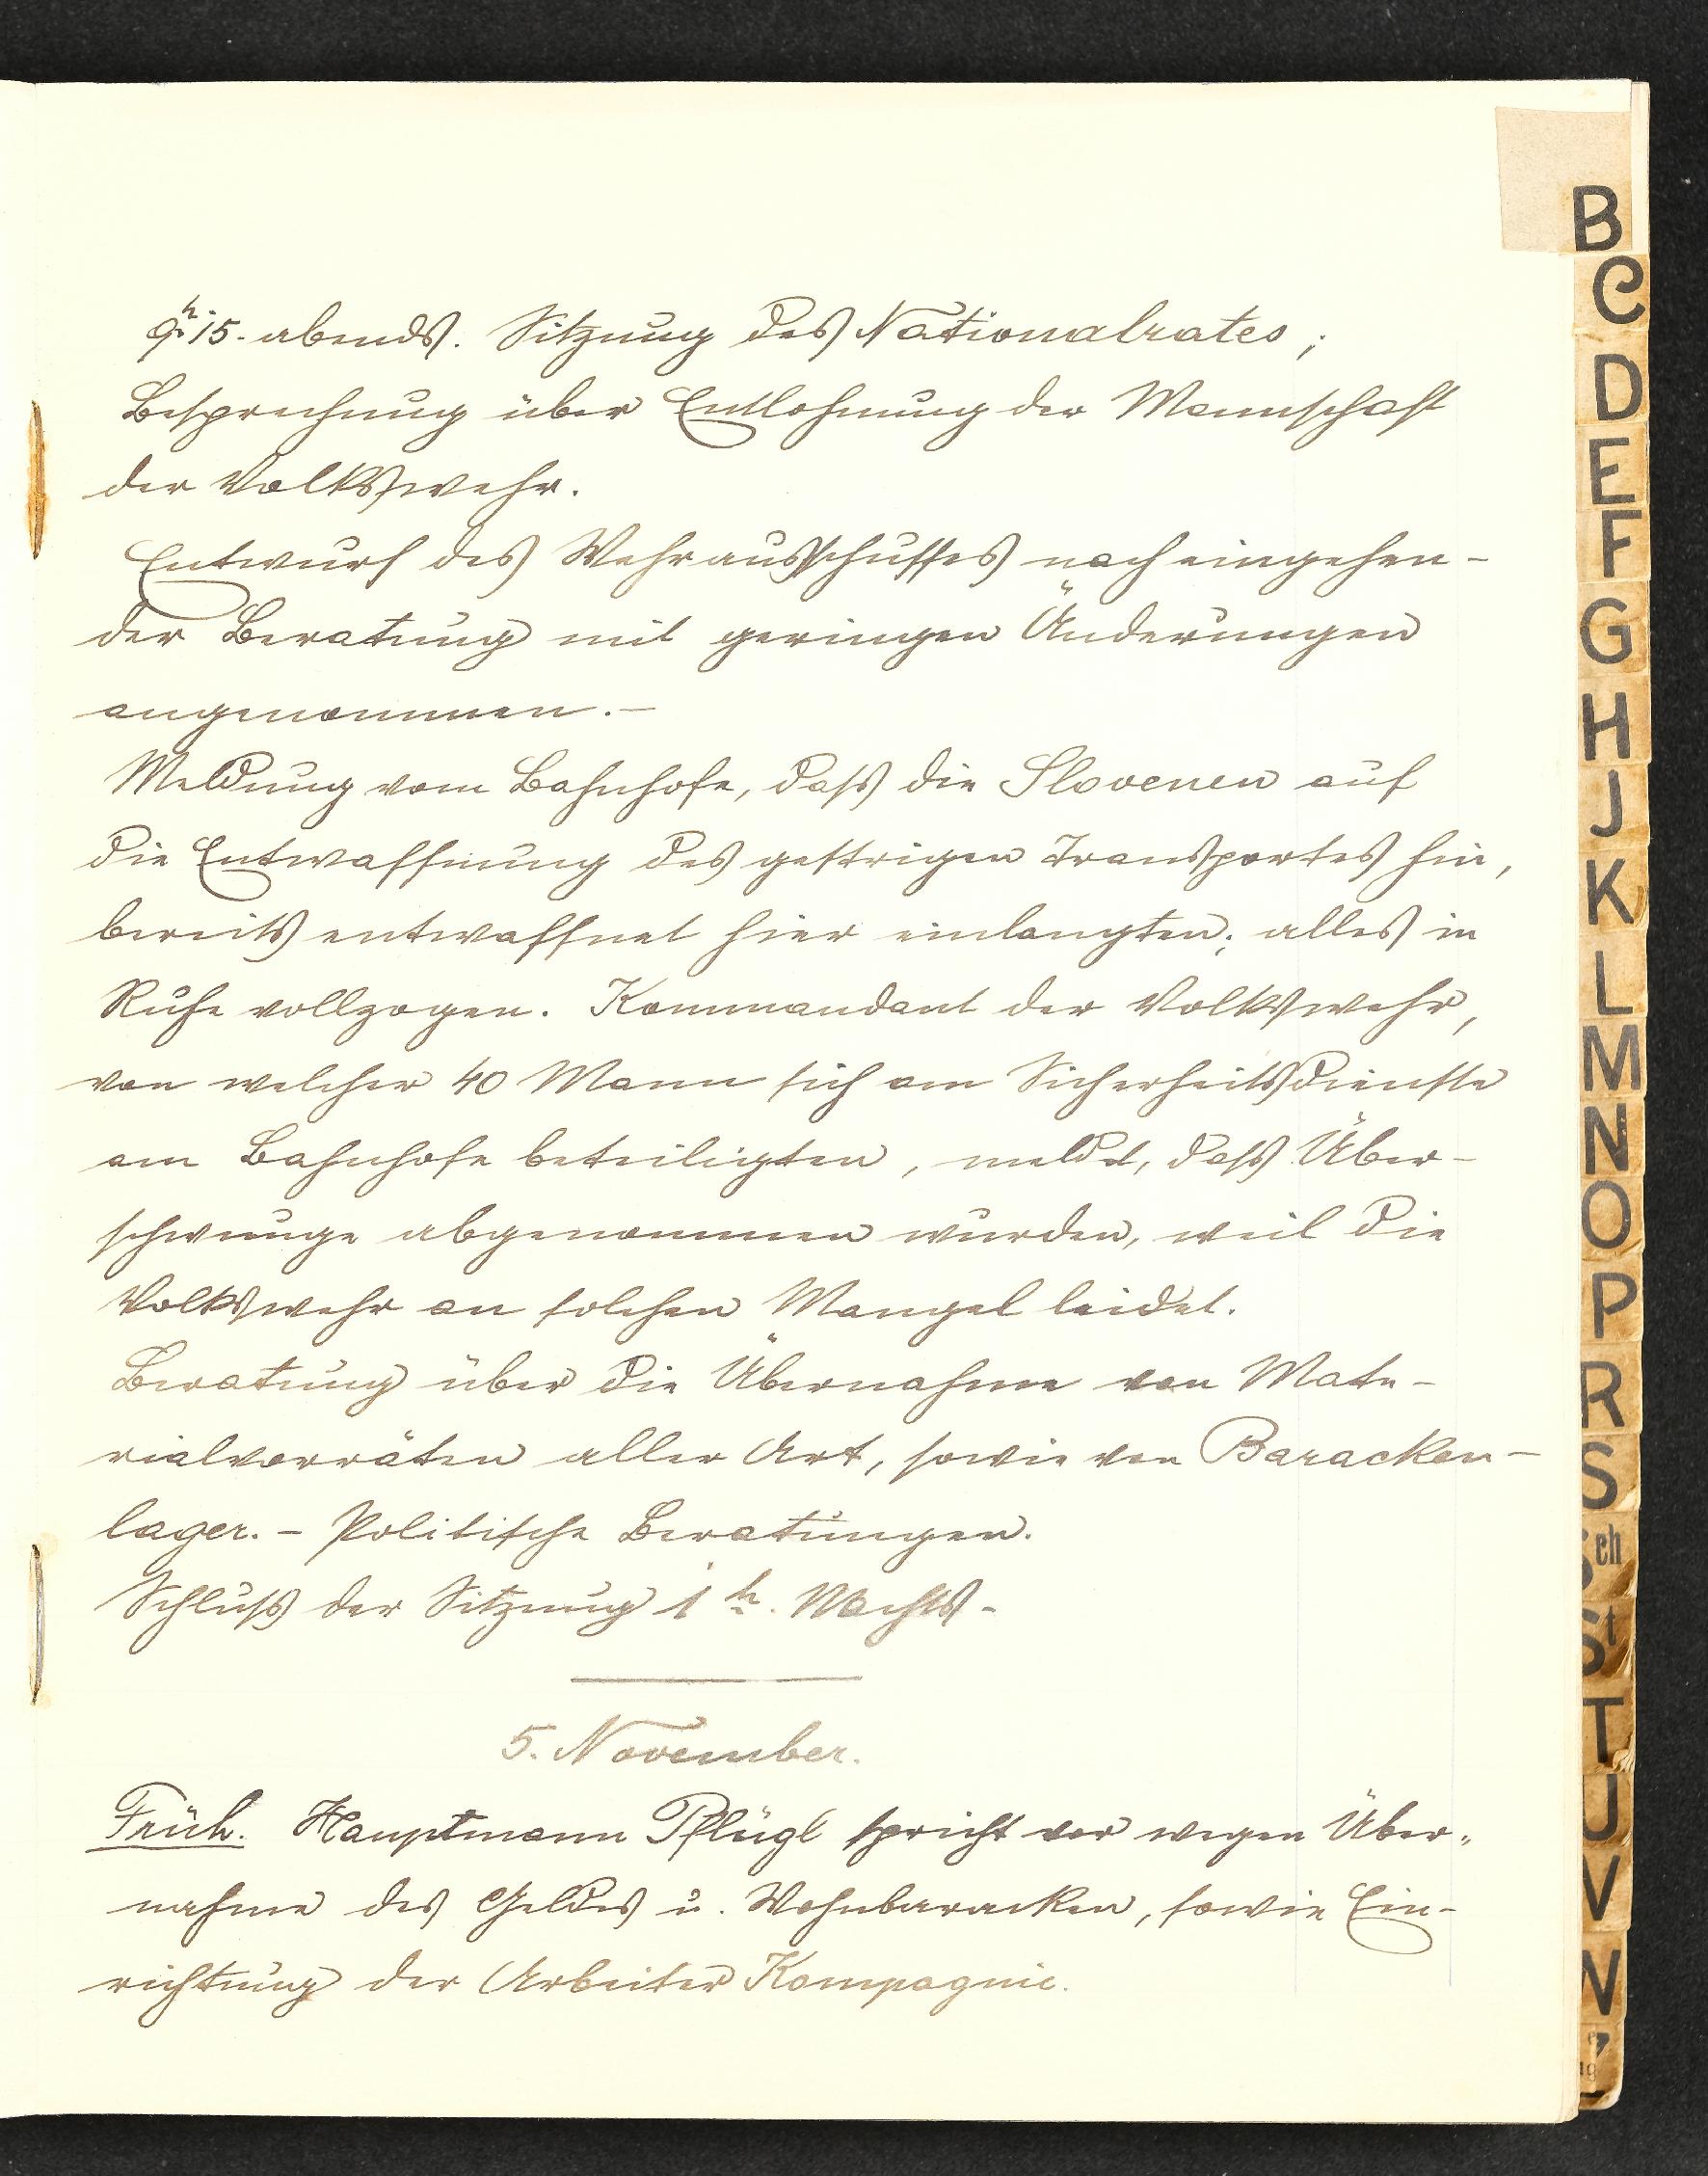 9h 15. abends. Sitzung des Nationalrates;
Besprechung über Entlohnung der Mannschaft
der Volkswehr.
Entwurf des Wehrausschusses nach eingehen-
der Beratung mit geringen Änderungen
angenommen.-
Meldung vom Bahnhofe, dass die Slovenen auf
die Entwaffnung des gestrigen Transportes hin,
bereits entwaffnet hier einlangten; alles in
Ruhe vollzogen. Kommandant der Volkswehr,
von welcher 40 Mann sich am Sicherheitsdienste
am Bahnhofe beteiligten, meldet, dass Über-
schwunge abgenommen wurden, weil die
Volkswehr an solchen Mangel leidet.
Beratung über die Übernahme von Mate-
rialvorräten aller Art, sowie von Baracken-
lager. - Politische Beratungen.
Schluss der Sitzung 1 h. Nachts-
5. November.
Früh. Hauptmann Pflügl spricht vor wegen Über-
nahme des Geldes u. Wohnbaracken, sowie Ein-
richtung der Arbeiter Kompagnie.
B
C
D
E
F
G
H
J
K
L
M
N
O
P
R
S
Sch
St
T
U
V
W